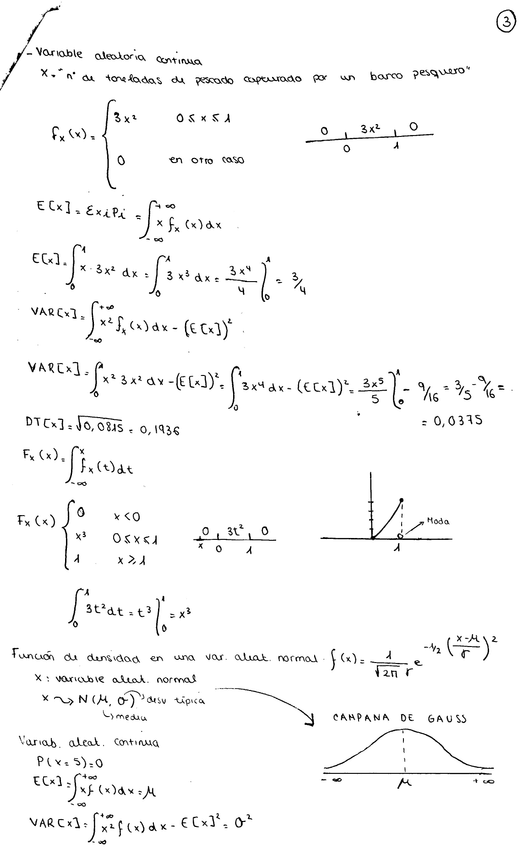 ③
- Variable aleatoria continua
X = "nº de toneladas de pescado capturado por un barco pesquero"
f_x(x) = { 3x² 0 ≤ x ≤ 1
0 en otro caso
0 3x² 0
0 1
E[x] = Σ xi Pi = ∫_{-∞}^{+∞} x f_x(x) dx
E[x] = ∫_0^1 x · 3x² dx = ∫_0^1 3x³ dx = 3x⁴/4 ]_0^1 = 3/4
VAR[x] = ∫_{-∞}^{+∞} x² f_x(x) dx - (E[x])²
VAR[x] = ∫_0^1 x² 3x² dx - (E[x])² = ∫_0^1 3x⁴ dx - (E[x])² = 3x⁵/5 ]_0^1 - 9/16 = 3/5 - 9/16 =
= 0,0375
DT[x] = √0,0375 = 0,1936
F_x(x) = ∫_{-∞}^x f_x(t) dt
F_x(x) { 0 x < 0
x³ 0 ≤ x ≤ 1
1 x ≥ 1
0 3t² 0
x 0 1
Moda
1
∫_0^1 3t² dt = t³ ]_0^1 = x³
Función de densidad en una var. aleat. normal. f(x) = 1/(√2π σ) e^{-1/2 ((x-μ)/σ)²}
X: variable aleat. normal
X ~> N(μ, σ) → desv típica
↳ media
CAMPANA DE GAUSS
-∞ μ +∞
Variab. aleat. continua
P(x = 5) = 0
E[x] = ∫_{-∞}^{+∞} x f(x) dx = μ
VAR[x] = ∫_{-∞}^{+∞} x² f(x) dx - E[x]² = σ²